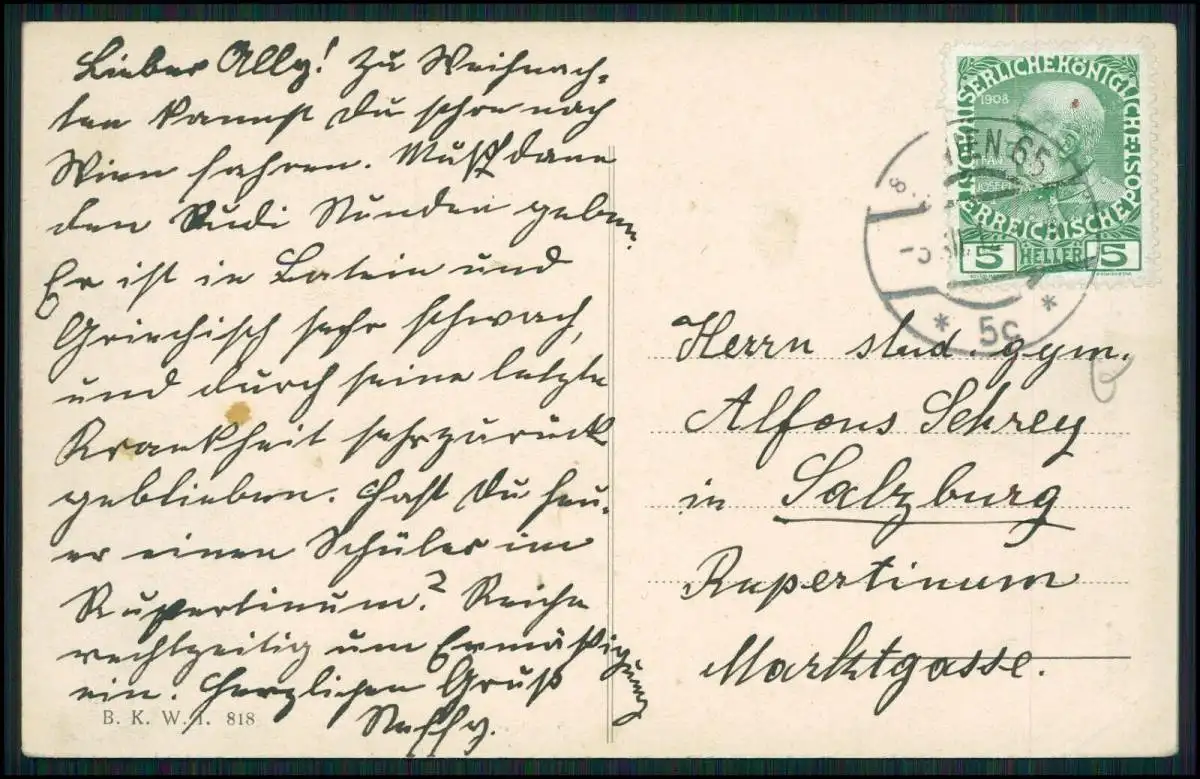 Lieber Ally! Zu Weihnach-
ten kannst du schon nach
Wien fahren. Mußt dann
den Rudi Stunden geben.
Er ist in Latein und
Griechisch sehr schwach,
und durch seine letzte
Krankheit sehr zurück
geblieben. Hast du heu-
er einen Schüler im
Rupertinum? Reiche
rechtzeitig um Ermäßigung
ein. Herzlichen Gruß
B. K. W. I. 818
KAISERLICHE KÖNIGLICHE ÖSTERREICHISCHE POST
1908
FRANZ
JOSEF I
5 HELLER 5
WIEN 65
* 5c *
Herrn stud. gym.
Alfons Schrey
in Salzburg
Rupertinum
Marktgasse.